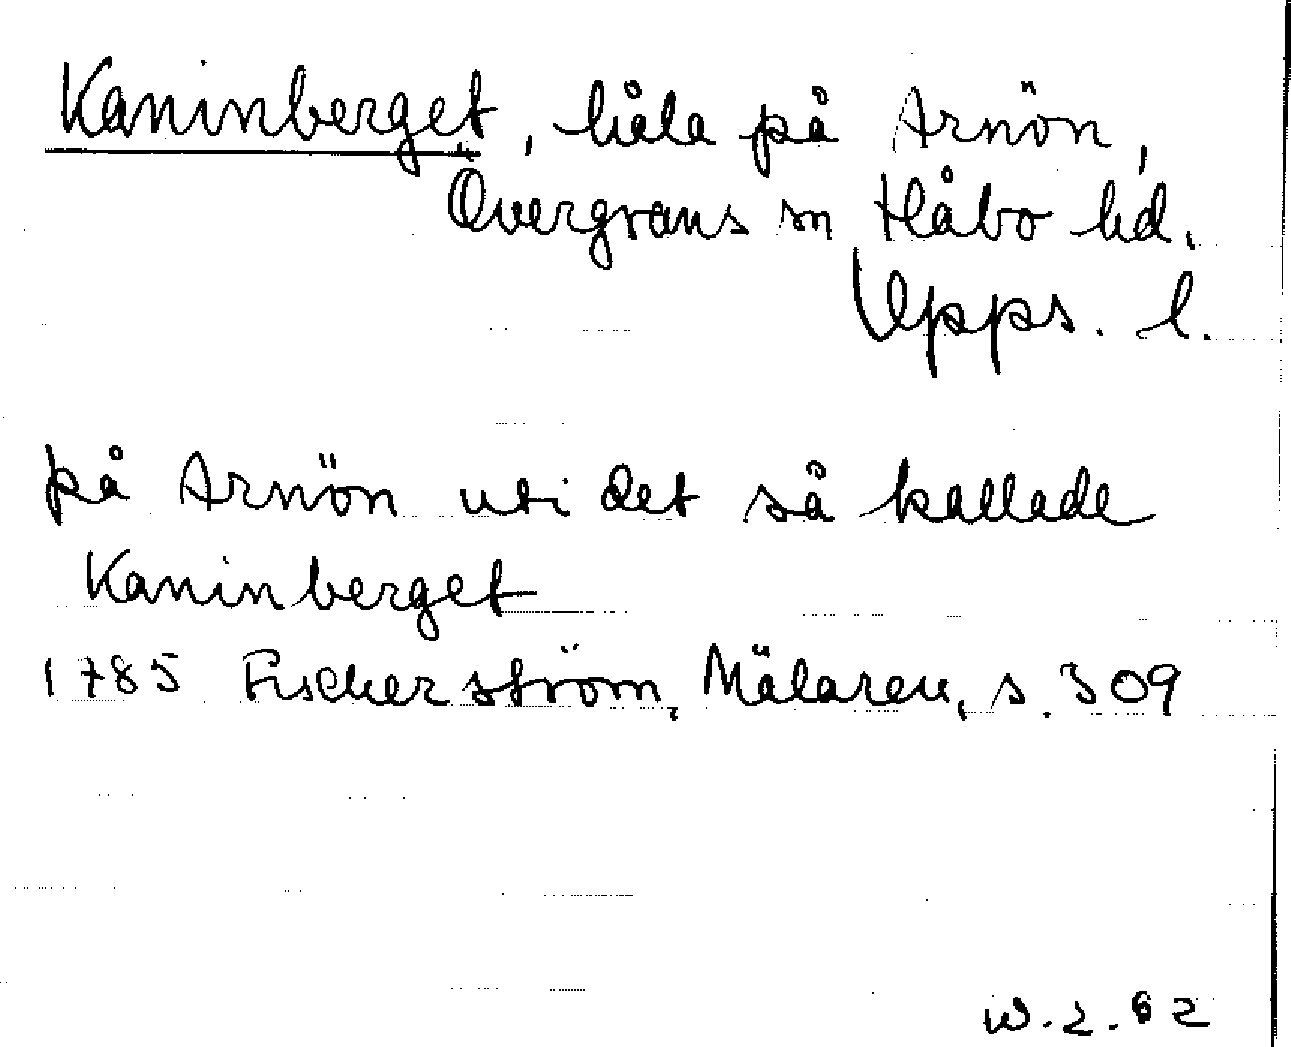 Kaninberget, håla på Arnön,
Övergrans sn Håbo hd.
Upps. l.
på Arnön uti det så kallade
Kaninberget
1785 Fischerström, Mälaren, s. 309
W. 2. 62